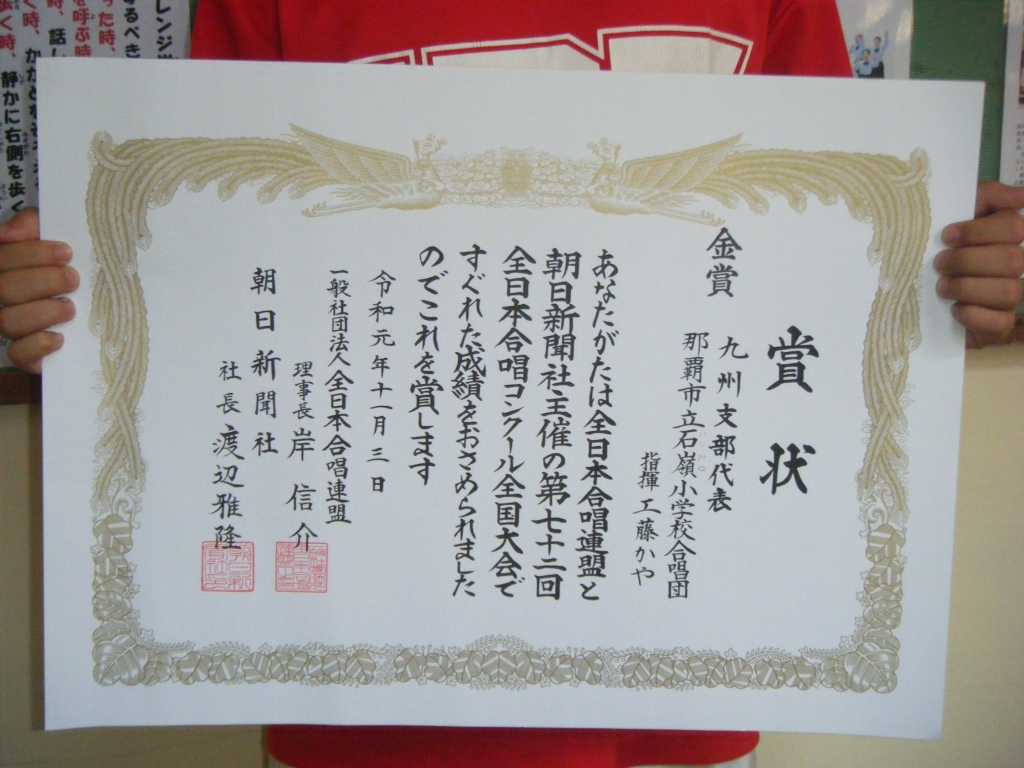 賞状
金賞
九州支部代表
那覇市立石嶺小学校合唱団
指揮 工藤かや
あなたがたは全日本合唱連盟と
朝日新聞社主催の第七十二回
全日本合唱コンクール全国大会で
すぐれた成績をおさめられました
のでこれを賞します
令和元年十一月三日
一般社団法人全日本合唱連盟
理事長 岸信介
朝日新聞社
社長 渡辺雅隆
静かに右側を歩く